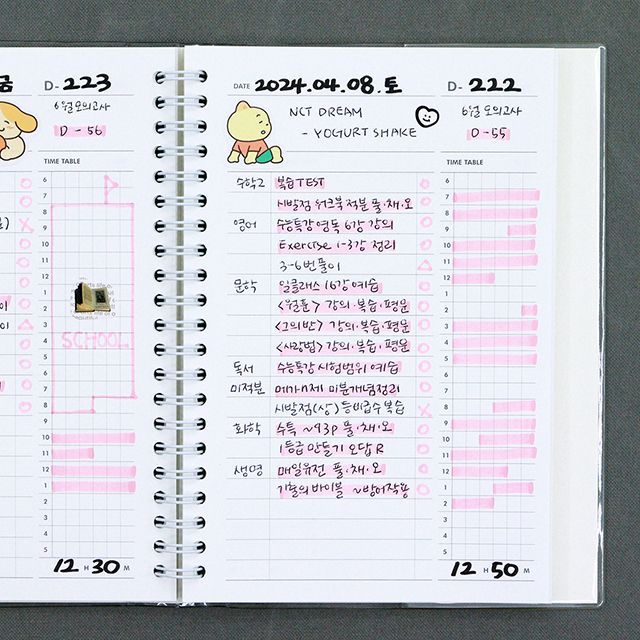 금
D-223
6월 모의고사
D-56
TIME TABLE
6
7
8
9
10
11
12
1
2
3
4
5
6
7
8
9
10
11
12
1
2
3
4
5
SCHOOL
12 H 30 M
DATE 2024.04.08.토
D-222
NCT DREAM
- YOGURT SHAKE
6월 모의고사
D-55
TIME TABLE
수학2 복습 TEST
시발점 워크북 적분 풀·채·오
영어 수능특강 영독 6강 강의
Exercise 1-3강 정리
3-6번 풀이
문학 일클래스 16강 예습
<월훈> 강의·복습·평운
<고의반> 강의·복습·평운
<사랑법> 강의·복습·평운
독서 수능특강 시험범위 예습
미적분 메가n제 미분개념정리
시발점(상) 등비급수 복습
화학 수특 ~93p 풀·채·오
1등급 만들기 오답 R
생명 매일유전 풀·채·오
기출의 바이블 ~방어작용
6
7
8
9
10
11
12
1
2
3
4
5
6
7
8
9
10
11
12
1
2
3
4
5
12 H 50 M